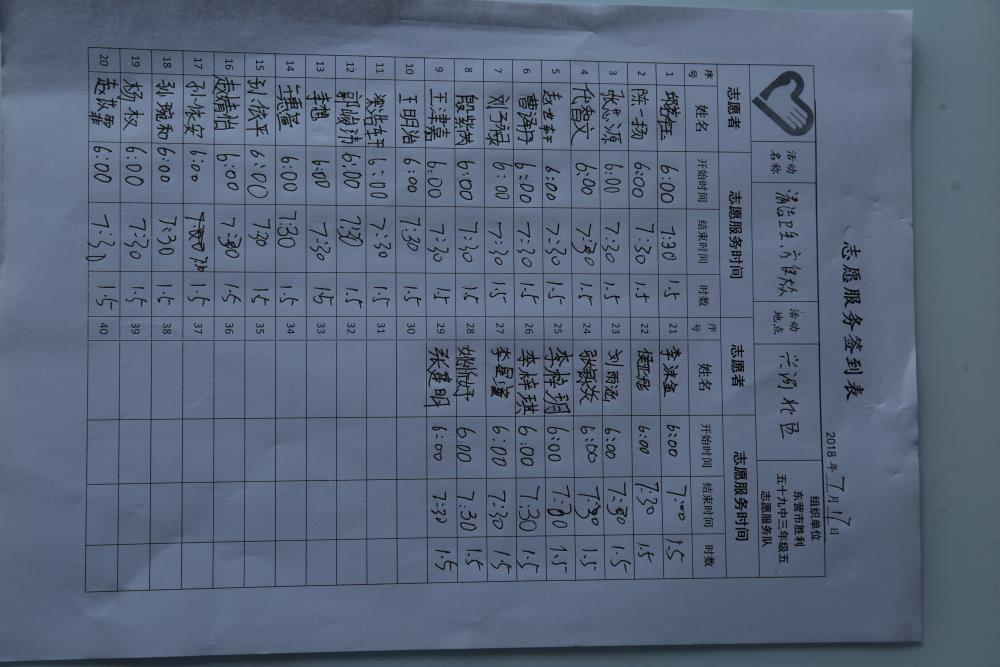 志愿服务签到表
2018年7月17日
活动名称 清洁卫生 活动地点 兴 社区 组织单位 东营市胜利五十九中三年级五志愿服务队
志愿者 志愿服务时间 志愿者 志愿服务时间
序号 姓名 开始时间 结束时间 时数 序号 姓名 开始时间 结束时间 时数
1 6:00 7:30 1.5 21 6:00 7:00 1.5
2 陈一扬 6:00 7:30 1.5 22 6:00 7:30 1.5
3 张思源 6:00 7:30 1.5 23 刘雨涵 6:00 7:30 1.5
4 6:00 7:30 1.5 24 6:00 7:30 1.5
5 赵世轩 6:00 7:30 1.5 25 李梓玥 6:00 7:30 1.5
6 6:00 7:30 1.5 26 李梓琪 6:00 7:30 1.5
7 刘子禄 6:00 7:30 1.5 27 6:00 7:30 1.5
8 殷紫淇 6:00 7:30 1.5 28 6:00 7:30 1.5
9 王津嘉 6:00 7:30 1.5 29 张建明 6:00 7:30 1.5
10 王明浩 6:00 7:30 1.5 30
11 梁浩轩 6:00 7:30 1.5 31
12 郭峻玮 6:00 7:30 1.5 32
13 李旭 6:00 7:30 1.5 33
14 6:00 7:30 1.5 34
15 孙依平 6:00 7:30 1.5 35
16 赵婧怡 6:00 7:30 1.5 36
17 6:00 7:30 1.5 37
18 孙琬和 6:00 7:30 1.5 38
19 杨权 6:00 7:30 1.5 39
20 6:00 7:30 1.5 40